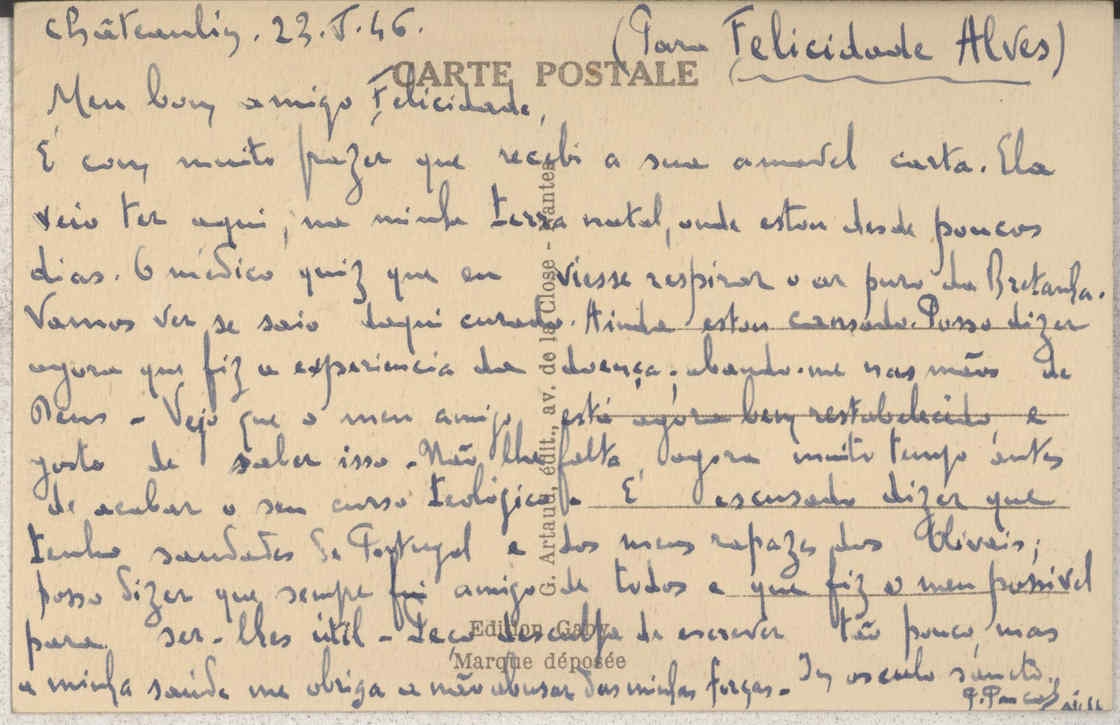 Châteaulin. 23.V.46.
(Para Felicidade Alves)
CARTE POSTALE
Meu bom amigo Felicidade,
É com muito prazer que recebi a sua amavel carta. Ela
veio ter aqui, na minha terra natal, onde estou desde poucos
dias. O médico quiz que eu viesse respirar o ar puro da Bretanha.
Vamos ver se saio daqui curado. Ainda estou cansado. Posso dizer
agora que fiz a experiencia da doença; abando-me nas mãos de
Deus - Vejo que o meu amigo está agora bem restabelecido, e
gosto de saber isso - Não lhe falta, agora muito tempo antes
de acabar o seu curso teológico. É escusado dizer que
tenho saudades de Portugal e dos meus rapazes dos Olivais;
posso dizer que sempre fui amigo de todos e que fiz o meu possivel
para ser-lhes útil - Peço desculpa de escrever tão pouco, mas
a minha saúde me obriga a não abusar das minhas forças - In osculo sancto.
G. Artaud, édit., av. de la Close - Nantes
Edition Gaby
Marque déposée